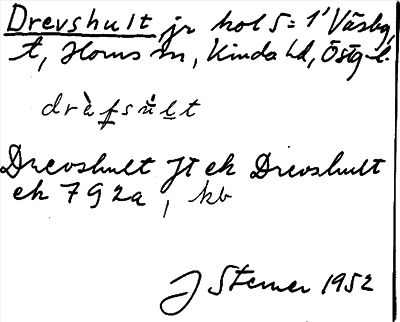 Drevshult, jr hol S = 1' Väsby
t, Horns sn, Kinda hd, Östg. l.
drȧ̀fsu̇̀lt
Drevshult Jt ek Drevshult
ek 7 G 2a, kb
J Stemer 1952